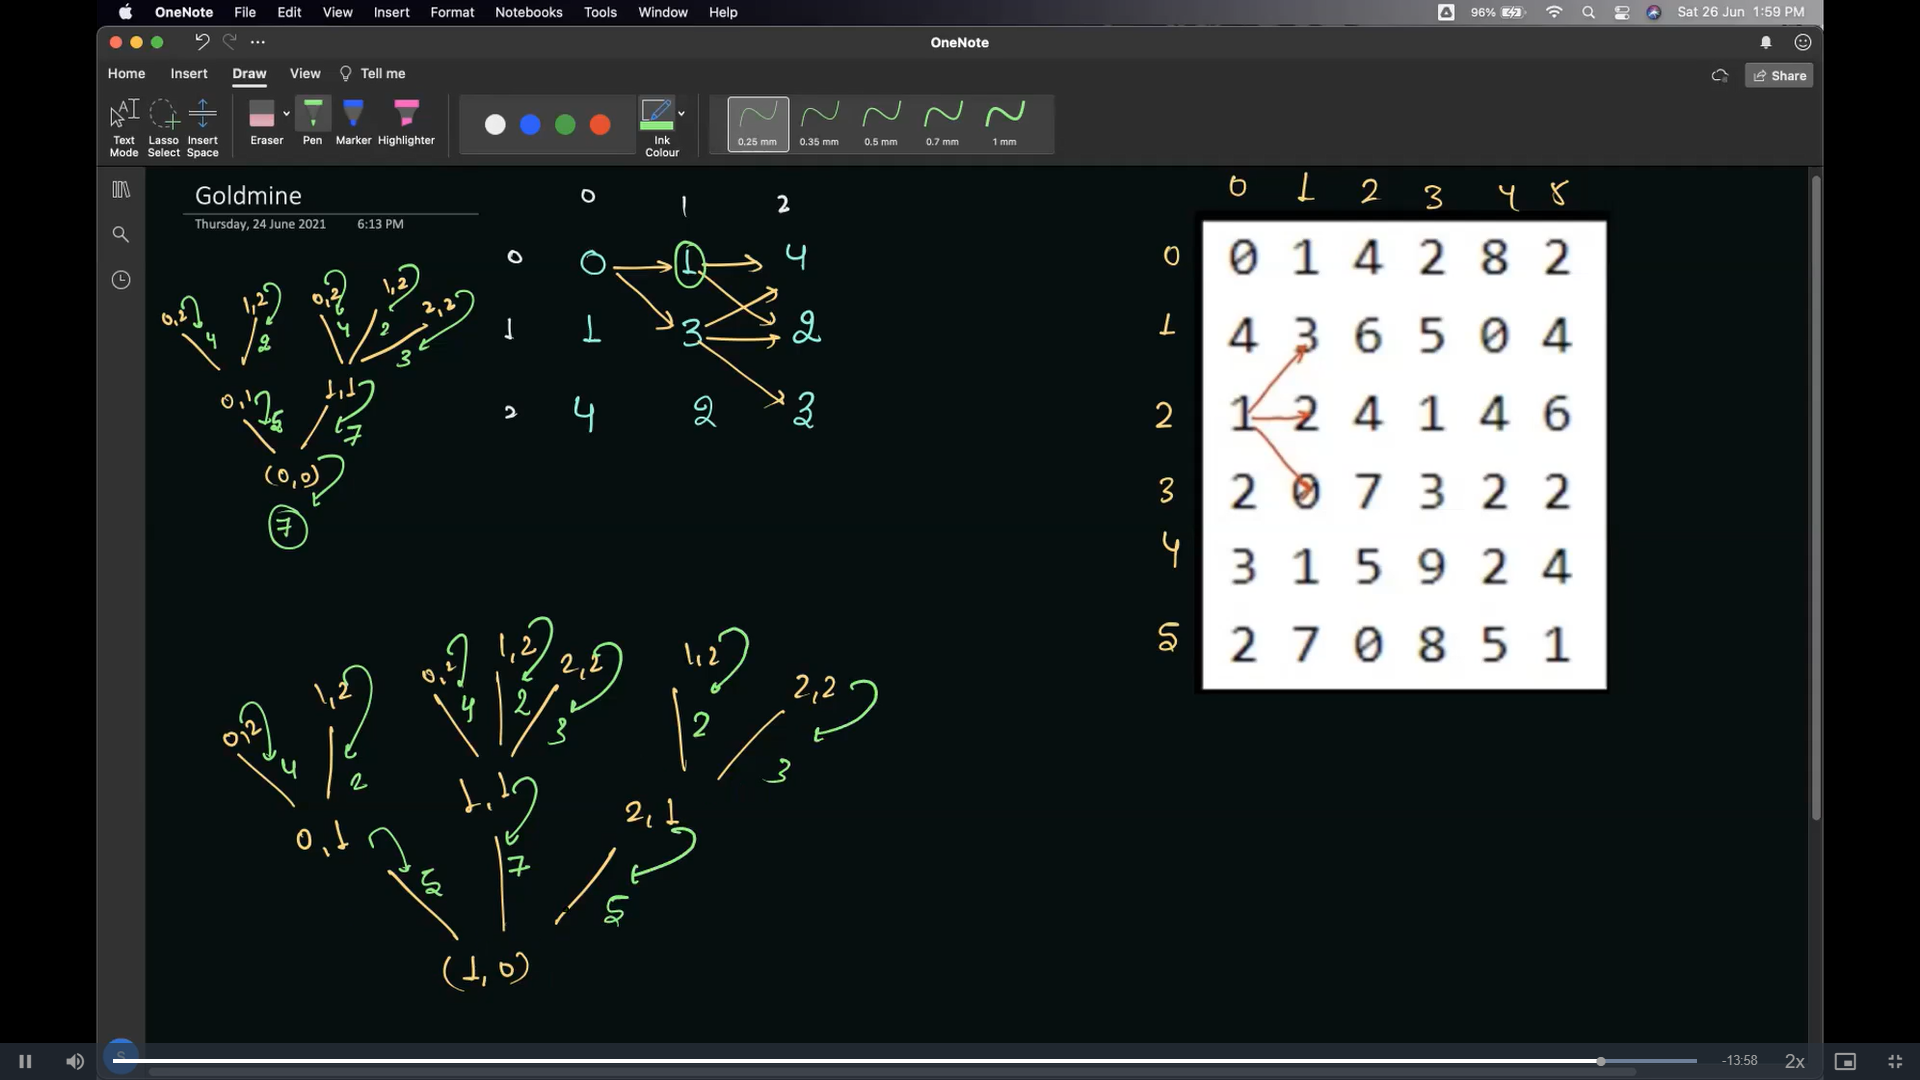 OneNote File Edit View Insert Format Notebooks Tools Window Help 96% Sat 26 Jun 1:59 PM
OneNote
Home Insert Draw View Tell me Share
Text Mode Lasso Select Insert Space Eraser Pen Marker Highlighter Ink Colour 0.25 mm 0.35 mm 0.5 mm 0.7 mm 1 mm
Goldmine
Thursday, 24 June 2021 6:13 PM
0 1 2
0 0 1 4
1 1 3 2
2 4 2 3
0,2 1,2 0,2 1,2 2,2
4 2 4 2 3
0,1 1,1
5 7
(0,0)
7
0 1 2 3 4 5
0 0 1 4 2 8 2
1 4 3 6 5 0 4
2 1 2 4 1 4 6
3 2 0 7 3 2 2
4 3 1 5 9 2 4
5 2 7 0 8 5 1
0,2 1,2 0,2 1,2 2,2 1,2 2,2
4 2 4 2 3 2 3
0,1 1,1 2,1
5 7 5
(1,0)
S -13:58 2x